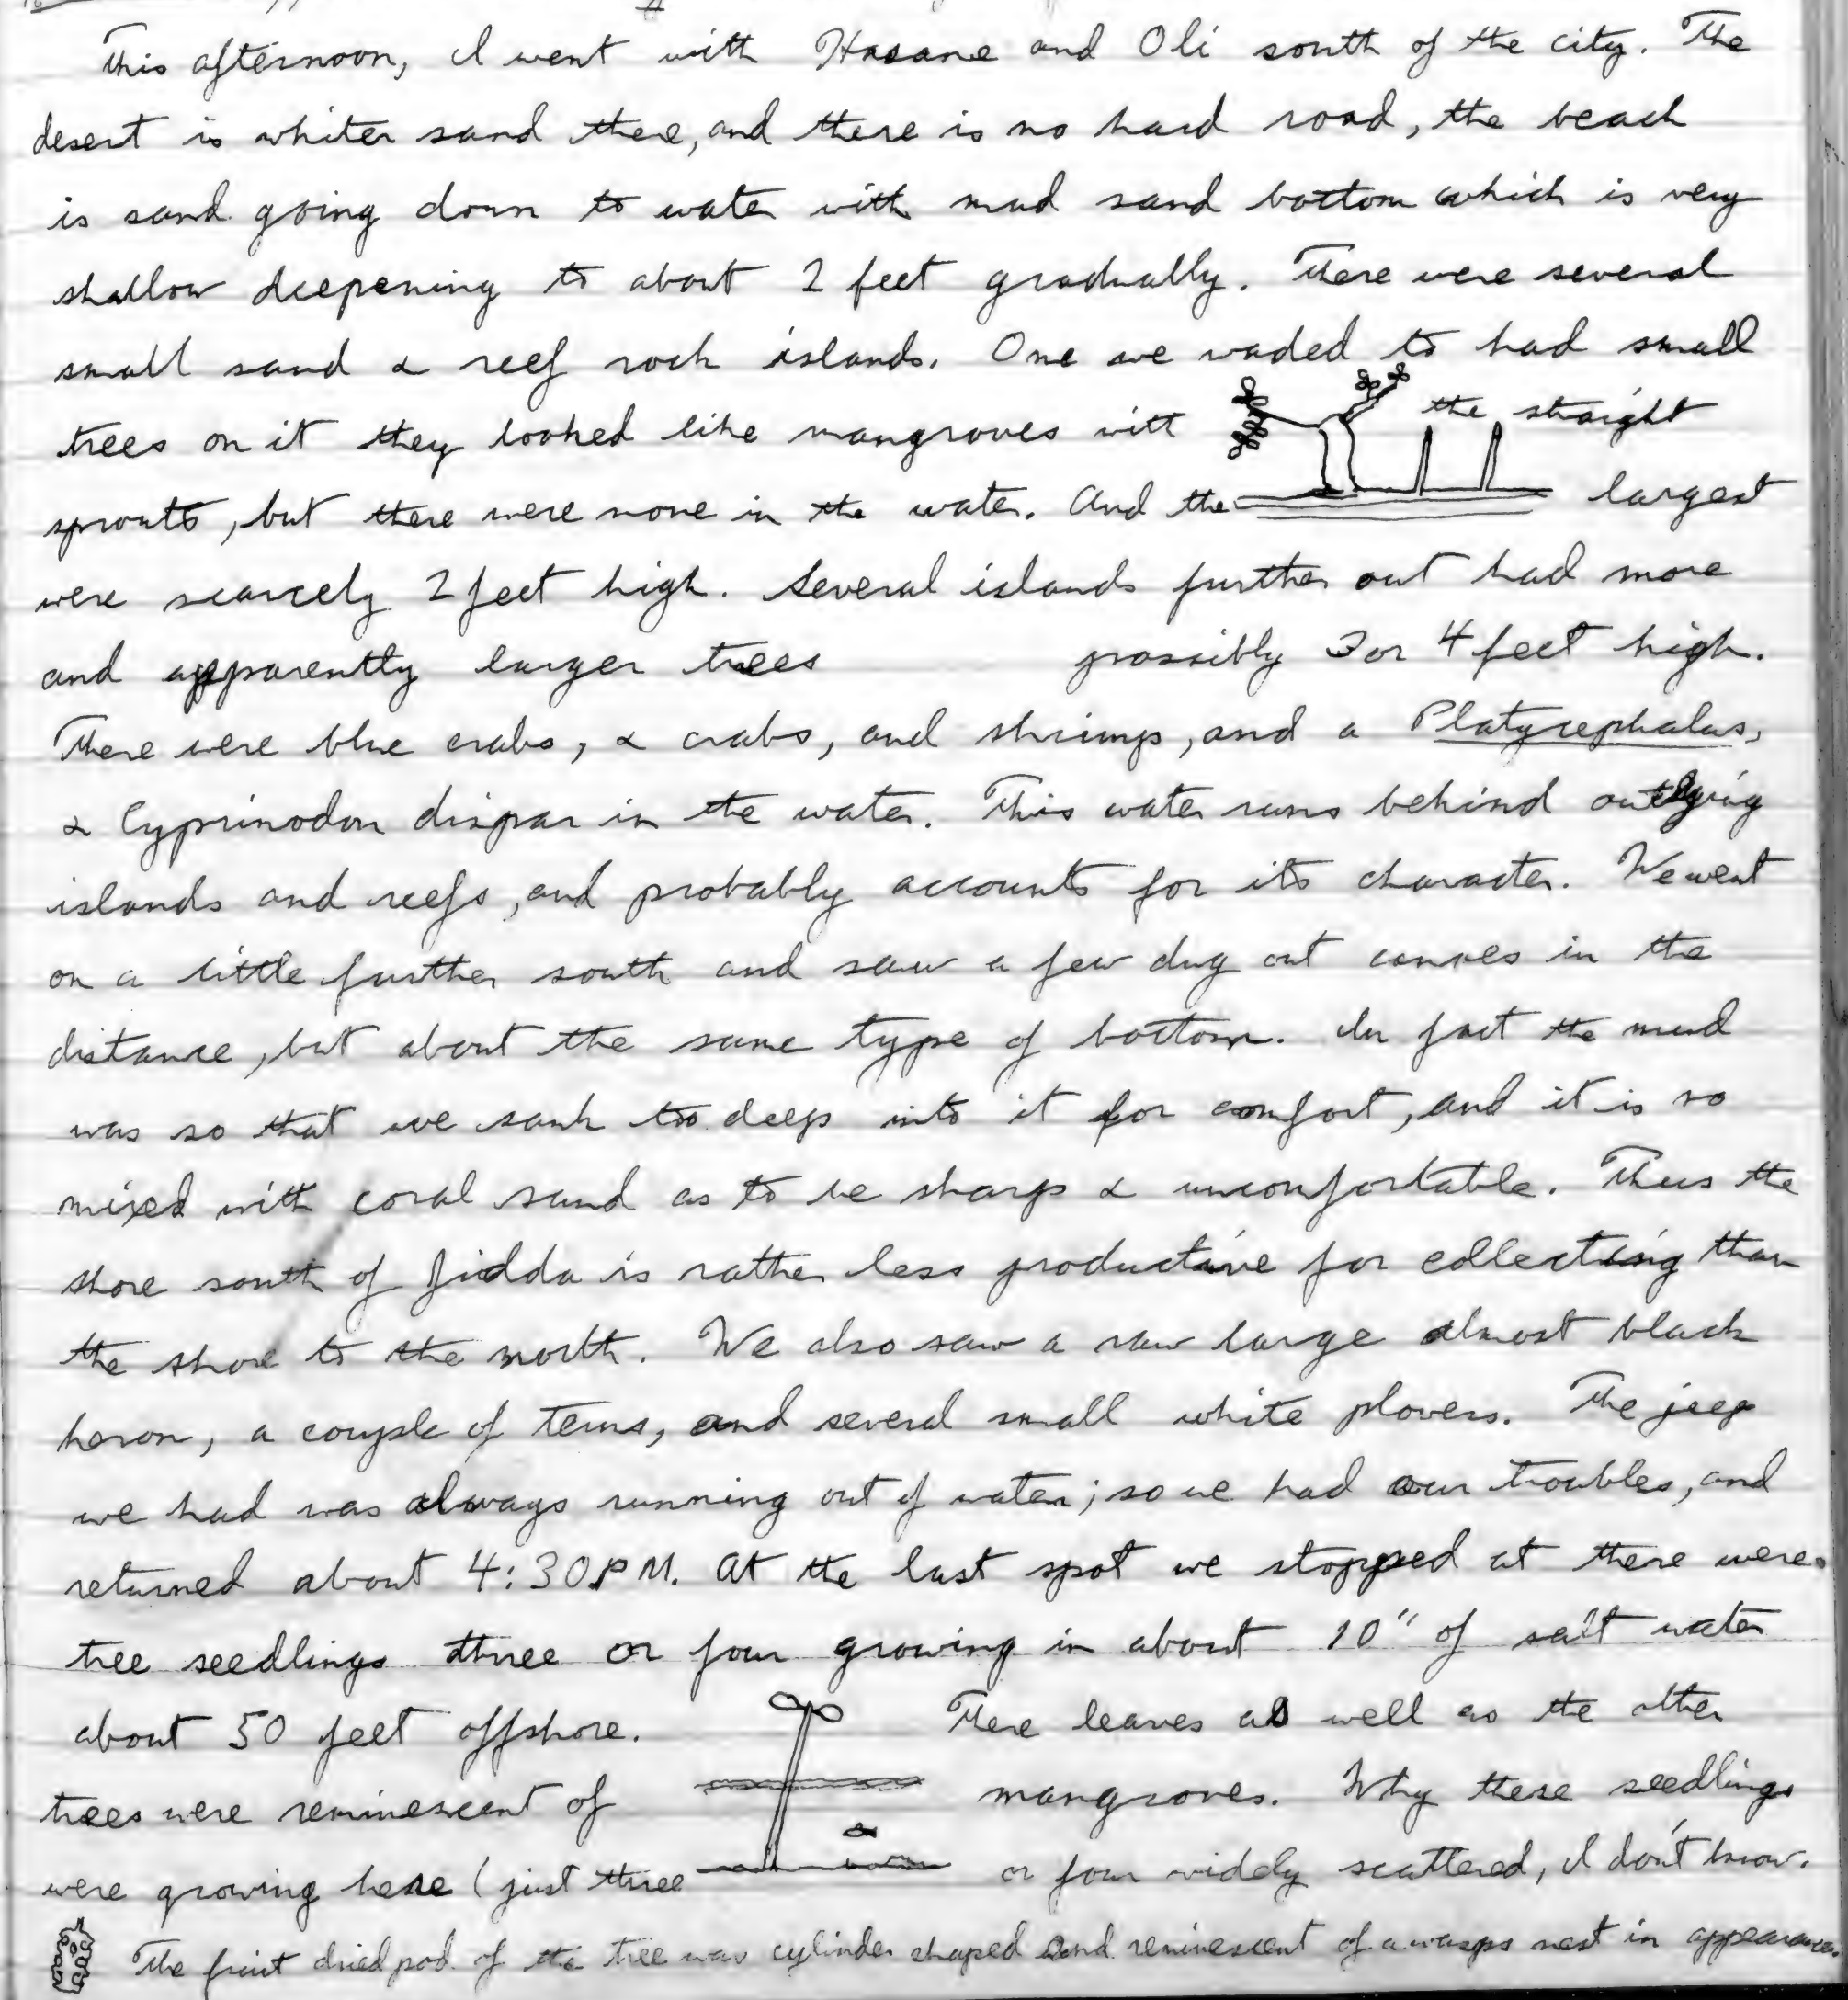 This afternoon, I went with Hasane and Oli south of the city. The
desert is whiter sand there, and there is no hard road, the beach
is sand going down to water with mud sand bottom which is very
shallow deepening to about 2 feet gradually. There were several
small sand & reef rock islands. One we waded to had small
trees on it they looked like mangroves with the straight
sprouts, but there were none in the water. And the largest
were scarcely 2 feet high. Several islands further out had more
and apparently larger trees possibly 3 or 4 feet high.
There were blue crabs, & crabs, and shrimps, and a Platycephalus,
& Cyprinodon dispar in the water. This water runs behind outlying
islands and reefs, and probably accounts for its character. We went
on a little further south and saw a few dug out canoes in the
distance, but about the same type of bottom. In fact the mud
was so that we sank too deep into it for comfort, and it is so
mixed with coral sand as to be sharp & uncomfortable. Thus the
shore south of Jidda is rather less productive for collecting than
the shore to the north. We also saw a large almost black
heron, a couple of terns, and several small white plovers. The jeep
we had was always running out of water; so we had our troubles, and
returned about 4:30 PM. At the last spot we stopped at there were
tree seedlings three or four growing in about 10" of salt water
about 50 feet offshore. There leaves as well as the other
trees were reminescent of mangroves. Why these seedlings
were growing here (just three or four widely scattered, I don't know.
The fruit dried pod of the tree was cylinder shaped and reminescent of a wasps nest in appearance.